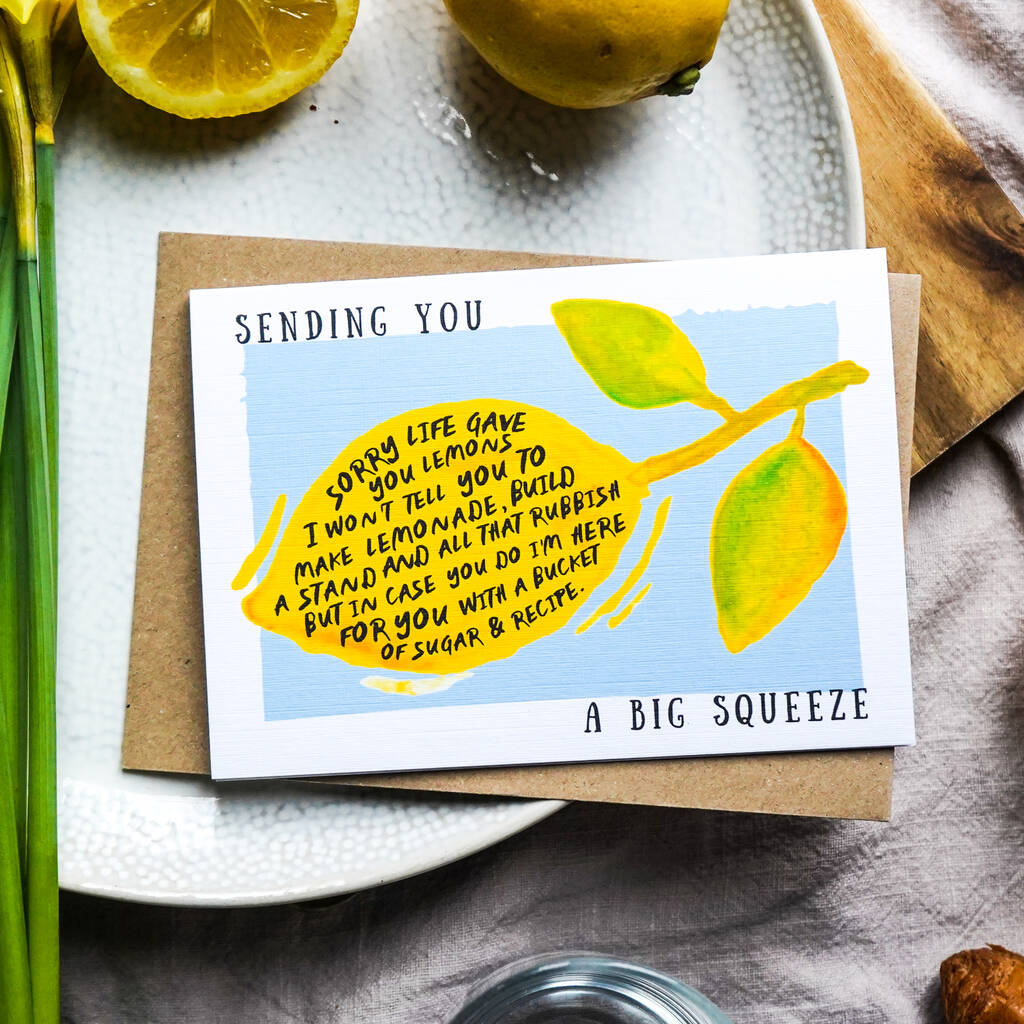 SENDING YOU
SORRY LIFE GAVE
YOU LEMONS
I WON'T TELL YOU TO
MAKE LEMONADE, BUILD
A STAND AND ALL THAT RUBBISH
BUT IN CASE YOU DO I'M HERE
FOR YOU WITH A BUCKET
OF SUGAR & RECIPE.
A BIG SQUEEZE